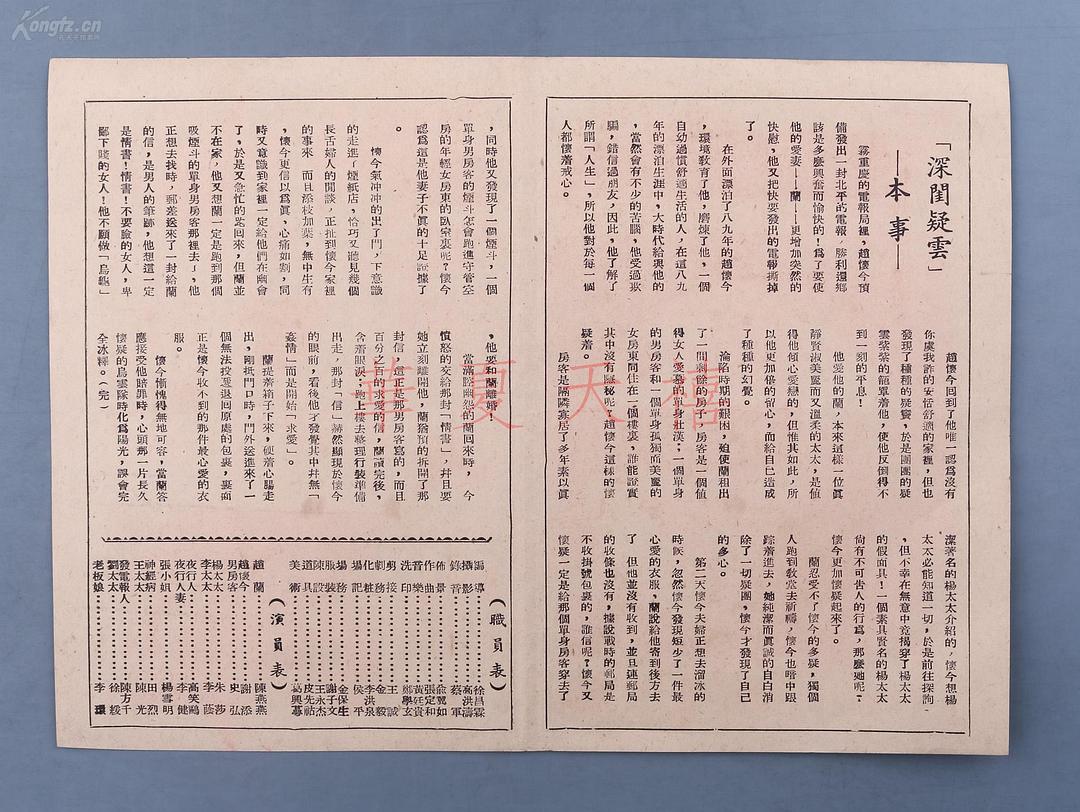 「深閨疑雲」
——本事——
霧重慶的電報局裡,趙懷今預
備發出一封北平的電報,勝利還鄉
該是多麼興奮而愉快的!為了要使
他的愛妻——蘭——更增加突然的
快慰,他又把快要發出的電報撕掉
了。
在外面漂泊了八九年的趙懷今
,環境教育了他,磨煉了他,一個
自幼過慣舒適生活的人,在這八九
年的漂泊生涯中,大時代給與他的
,當然會有不少的苦腦,他受過欺
騙,錯信過朋友,因此,他了解了
所謂「人生」,所以他對於每一個
人都懷着戒心。
趙懷今回到了他唯一認為沒有
你虞我詐的安恬舒適的家裡,但也
發現了種種的疑竇,於是團團的疑
雲縈縈的籠罩着他,使他反倒得不
到一刻的平息!
他愛他的蘭,本來這樣一位眞
靜賢淑美麗而又溫柔的太太,是值
得他傾心愛戀的,但惟其如此,所
以他更加倍的留心,而給自己造成
了種種的幻覺。
淪陷時期的艱困,廹使蘭租出
了一間剩餘的房子,房客是一個值
得女人愛慕的單身壯漢;一個單身
的男房客和一個單身孤獨而美麗的
女房東同住在一個樓裏,誰能證實
其中沒有隱秘呢?趙懷今這樣的懷
疑着。
房客是隔隣寡居了多年素以眞
潔著名的楊太太介紹的,懷今想楊
太太必能知道一切,於是前往探詢
,但不幸在無意中竟揭穿了楊太太
的假面具!一個素具賢名的楊太太
尙有不可吿人的行爲,那麼她呢?
懷今更加懷疑起來了。
蘭忍受不了懷今的多疑,獨個
人跑到敎堂去祈禱,懷今也暗中跟
踪着進去,她純潔而眞誠的自白消
除了一切疑團,懷今才發現了自己
的多心。
第二天懷今夫婦正想去溜冰的
時候,忽然懷今發現短少了一件最
心愛的衣服,蘭說給他寄到後方去
了,但他並沒有收到,並且連郵局
的收條也沒有,據說戰時的郵局是
不收掛號包裹的,誰信呢?懷今又
懷疑一定是給那個單身房客穿去了
,同時他又發現了一個煙斗,一個
單身男房客的煙斗怎會跑進守管空
房的年輕女房東的臥室裏呢?懷今
認爲這是他妻子不眞的十足證據了
。
懷今氣冲冲的出了門,下意識
的走進了煙紙店,恰巧又聽見幾個
長舌婦人的閒談,正扯到懷今家裡
的事來,而且添枝加葉,無中生有
,懷今更信以爲眞,心痛如割,同
時又意識到家裡一定給他們在幽會
了,於是又急忙的跑回來,但蘭並
不在家,他又想蘭一定是跑到那個
吸煙斗的單身男房客那裡去了,他
正想去找時,郵差送來了一封給蘭
的信,是男人的筆跡,他想這一定
是情書!情書!不要臉的女人,卑
鄙下賤的女人!他不願做「烏龜」
,他要和蘭離婚!
當滿腔幽怨的蘭回來時,今
憤怒的交給那封「情書」,幷且要
她立刻離開他,蘭猶預的拆開了那
封信,這正是那男房客寫的,而且
百分之百的求愛的信,蘭讀完後,
含着眼淚,跑上樓去整理行裝準備
出走,那封「信」赫然顯現於懷今
的眼前,看後他才發覺其中幷無「
姦情」而是開始「求愛」。
蘭提着箱子下來,硬着心腸走
出,剛抵門口時,門外送進來了一
個無法投遞退回原處的包裹,裏面
正是懷今收不到的那件最心愛的衣
服。
懷今慚愧得無地可容,當蘭答
應接受他賠罪時,心頭那一片長久
懷疑的烏雲陡時化為陽光,誤會完
全冰釋。(完)
(職員表)
編導……徐昌霖
攝影……高洪濤
錄音……蔡軍
佈景……俞翼如
作曲……張定和
音樂……黃廷貴
洗印……鄭學玄
剪接……王誠
劇務……金毅
化粧……李洪泉
場記……
場務……金保生
服裝……謝子文
陳設……王永杰
道具……皮先祜
美術……葛興蕚
(演員表)
趙蘭……陳燕燕
趙懷今……謝添
男房客……史弘
楊太太……朱莎
李太太……李蔭
夜行人……高笑鷗
夜行人妻……李健
張小姐……楊雪明
神經病……田烈
王太太……陳光
發電報人……陳方千
劉太太……徐嫒
老板娘……李環
Kongfz.cn
華夏天禧